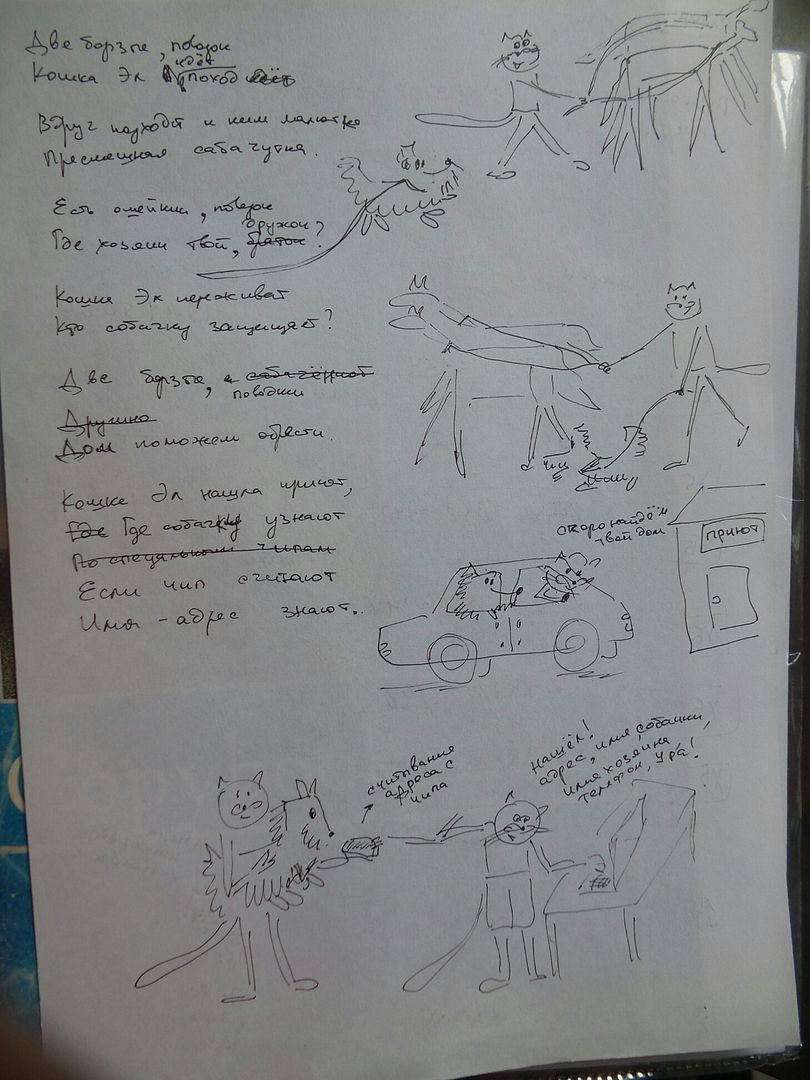 Две борзые, поводок
идёт
Кошка Эл в поход идёт
Вдруг подходит к ним малютка
Пресмешная сабачутка.
Есть ошейник, поводок
дружок?
Где хозяин твой, браток?
Кошка Эл переживат
Кто собачку защищает?
Две борзые,
поводки
Дружно
Дом поможем обрести.
Кошка Эл нашла приют,
Где Где собачку узнают
По специальным чипам
Если чип считают
Имя - адрес знают..
скоро найдём
твой дом
приют
считывание
адреса с
чипа
нашёл!
адрес, имя собачки,
имя хозяина,
телефон, ура!